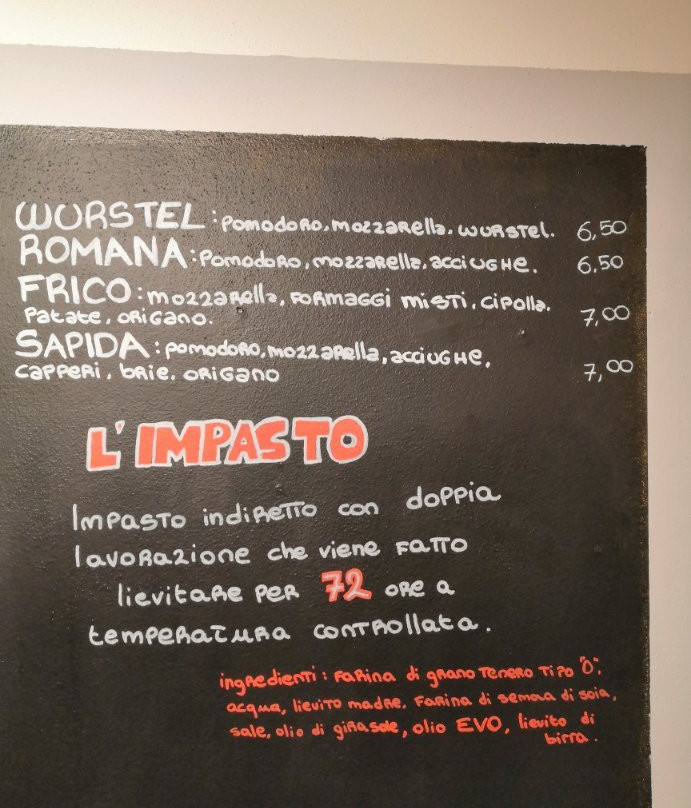 WURSTEL: POMODORO, MOZZARELLA, WURSTEL. 6,50
ROMANA: POMODORO, MOZZARELLA, ACCIUGHE. 6.50
FRICO: MOZZARELLA, FORMAGGI MISTI, CIPOLLA, 7,00
PATATE, ORIGANO.
SAPIDA: POMODORO, MOZZARELLA, ACCIUGHE,
CAPPERI, BRIE, ORIGANO 7,00
L'IMPASTO
Impasto indiretto con doppia
lavorazione che viene fatto
lievitare per 72 ore a
temperatura controllata.
ingredienti: farina di grano tenero tipo "0",
acqua, lievito madre, farina di semola di soia,
sale, olio di girasole, olio EVO, lievito di
birra.